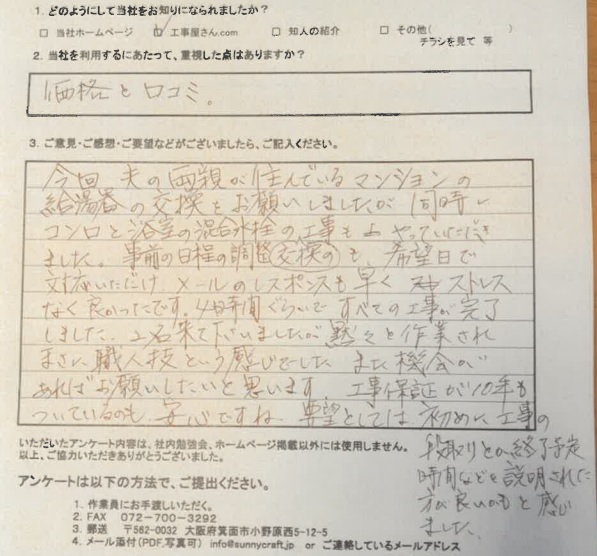 1. どのようにして当社をお知りになられましたか？
□ 当社ホームページ ☑ 工事屋さん.com □ 知人の紹介 □ その他( )
チラシを見て 等
2. 当社を利用するにあたって、重視した点はありますか？
価格と口コミ。
3. ご意見・ご感想・ご要望などがございましたら、ご記入ください。
今回 夫の両親が住んでいるマンションの
給湯器の交換をお願いしましたが 同時に
コンロと浴室の混合水栓の工事も やっていただき
ました。事前の日程の調整 交換の も 希望日で
対応いただけ メールのレスポンスも早く ストレス
なく良かったです。4時間ぐらいで すべての工事が完了
しました。2名来て下さいましたが 黙々と作業され
まさに職人技という感じでした また機会が
あればお願いしたいと思います 工事保証が10年も
ついているのも 安心ですね 要望としては 初めに工事の
段取りとか終了予定
時間などを説明された
方が良いのもと感じ
ました。
いただいたアンケート内容は、社内勉強会、ホームページ掲載以外には使用しません。
以上、ご協力いただきありがとうございました。
アンケートは以下の方法で、ご提出ください。
1. 作業員にお手渡しいただく。
2. FAX 072-700-3292
3. 郵送 〒562-0032 大阪府箕面市小野原西5-12-5
4. メール添付(PDF,写真可) info@sunnycraft.jp or ご連絡しているメールアドレス